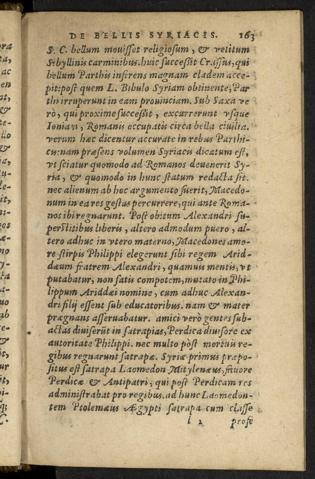 DE BELLIS SYRIACIS. 163
S. C. bellum mouisset religiosum, & vetitum
Sibyllinis carminibus. huic successit Crassus, qui
bellum Parthis inferens magnam cladem acce-
pit: post quem L. Bibulo Syriam obtinente, Par
thi irruperunt in eam prouinciam. Sub Saxa ve
rò, qui proximè successit, excurrerunt vsque
Ioniam, Romanis occupatis circa bella ciuilia.
verum hæc dicentur accuratè in rebus Parthi-
cis: nam præsens volumen Syriacis dicatum est,
vt sciatur quomodo ad Romanos deuenerit Sy-
ria, & quomodo in hunc statum redacta sit.
nec alienum ab hoc argumento fuerit, Macedo-
num in ea res gestas percurrere, qui ante Roma-
nos ibi regnarunt. Post obitum Alexandri su-
perstitibus liberis, altero admodum puero, al-
tero adhuc in vtero materno, Macedones amo-
re stirpis Philippi elegerunt sibi regem Arid-
dæum fratrem Alexandri, quamuis mentis, vt
putabatur, non satis compotem, mutato in Phi-
lippum Ariddæi nomine, cum adhuc Alexan-
dri filij essent sub educatoribus. nam & mater
prægnans asseruabatur. amici verò gentes sub-
actas diuiserūt in satrapias, Perdica diuisore ex
autoritate Philippi. nec multo pòst mortuis re-
gibus regnarunt satrapæ. Syriæ primus præpo-
situs est satrapa Laomedon Mitylenæus, fauore
Perdicæ & Antipatri, qui post Perdicam res
administrabat pro regibus. ad hunc Laomedon-
tem Ptolemæus Ægypti satrapa cum classe
l 2 profe